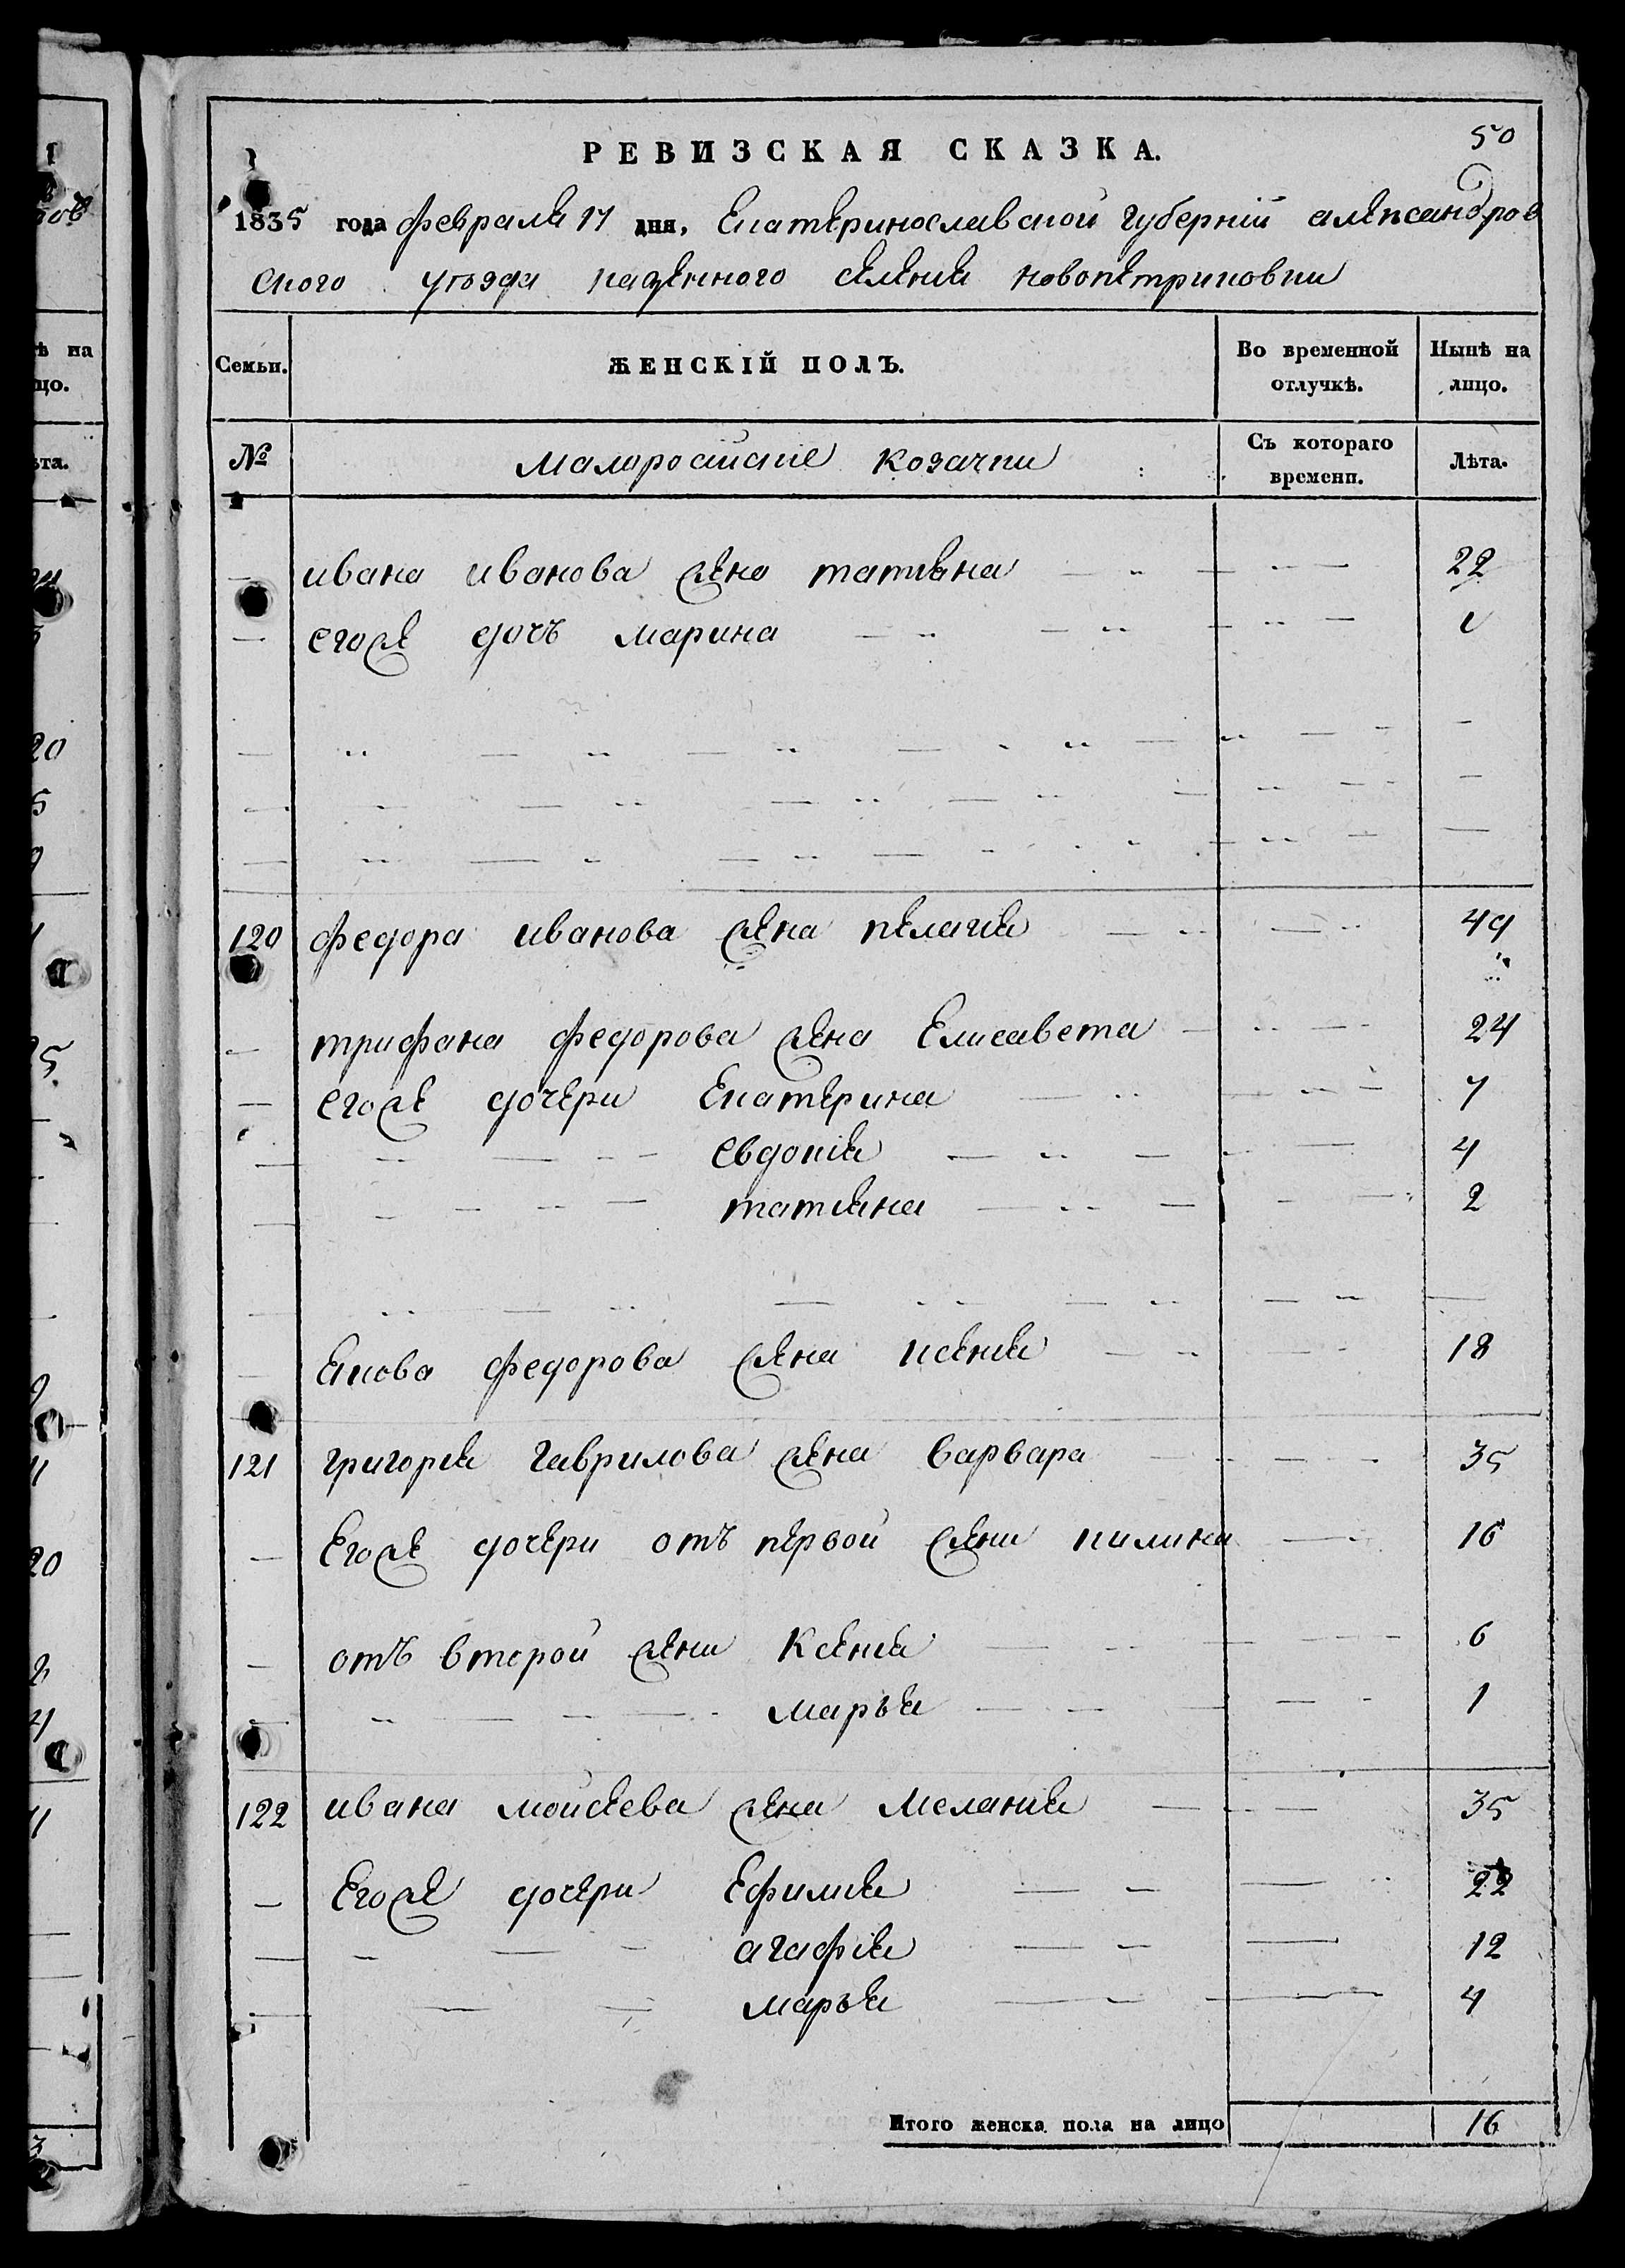 50
РЕВИЗСКАЯ СКАЗКА.
1835 года февраля 17 дня, Екатеринославской губернiи александров
ского уѣзда казенного селения новопетриковки
Семьи. ЖЕНСКIЙ ПОЛЪ. Во временной отлучкѣ. Нынѣ на лицо.
№ Малоросийские козачки Съ котораго времени. Лѣта.
ивана иванова жена татияна 22
егоже дочъ марина
120 федора иванова жена пелагия 49
трифана федорова жена Елисавета 24
егоже дочери Екатерина 7
евдокия 4
татияна 2
Якова федорова жена ксения 18
121 григория гаврилова жена варвара 35
Егоже дочери отъ первой жени килина 16
отъ второй жени Ксения 6
марья 1
122 ивана мойсеева жена мелания 35
Егоже дочери Ефимия 22
агафия 12
марья 4
Итого женска пола на лицо 16